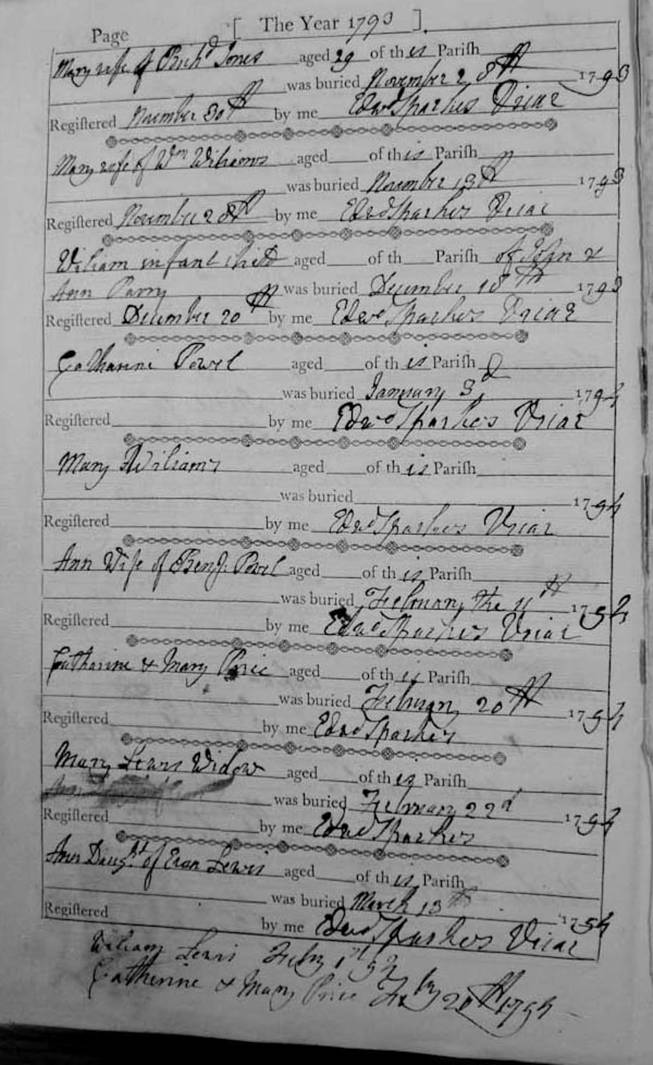 Page [ The Year 1793 ].
Mary wife of Richd Jones aged 29 of this Parish
was buried November 28th 1793
Registered November 30th by me Edwd Sparkes Vicar
Mary wife of Wm Williams aged of this Parish
was buried November 13th 1793
Registered November 28th by me Edwd Sparkes Vicar
William infant child aged of th Parish of John &
Ann Parry was buried December 18th 1793
Registered December 20th by me Edwd Sparkes Vicar
Catharine Powel aged of this Parish
was buried January 3d 1794
Registered by me Edwd Sparkes Vicar
Mary Williams aged of this Parish
was buried 1794
Registered by me Edwd Sparkes Vicar
Ann Wife of Benj. Powel aged of this Parish
was buried February the 11th 1794
Registered by me Edwd Sparkes Vicar
Catharine & Mary Price aged of this Parish
was buried February 20th 1794
Registered by me Edwd Sparkes
Mary Lewis Widow aged of this Parish
was buried February 22d 1794
Registered by me Edwd Sparkes
Ann Daught of Evan Lewis aged of this Parish
was buried March 13th 1794
Registered by me Edwd Sparkes Vicar
William Lewis Feby
Catherine & Mary Price Feby 20th 1794